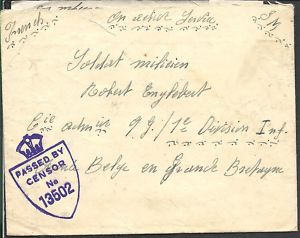 French On active Service S M
Soldat milicien
Robert Englebert
Cie 9 G. / 1e Division Inf.
Belge en Grande Bretagne
PASSED BY
CENSOR
No
13502